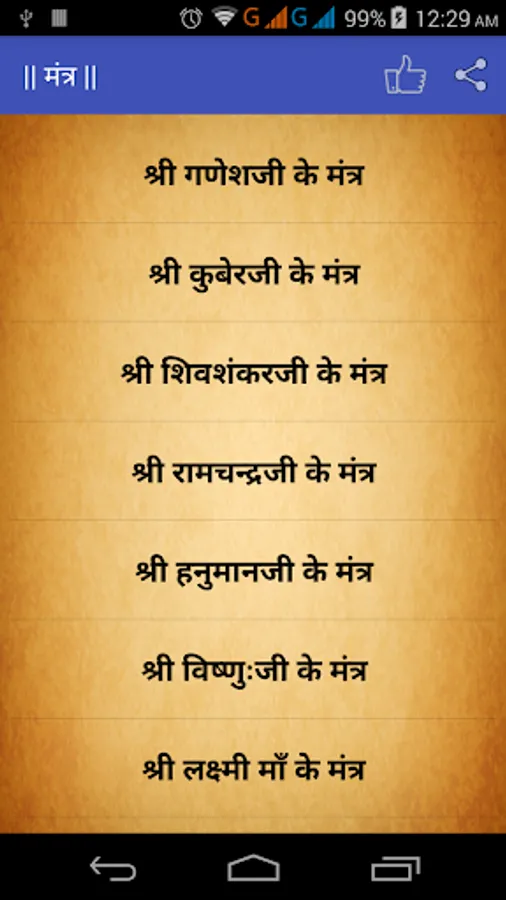 G G 99% 12:29 AM
|| मंत्र ||
श्री गणेशजी के मंत्र
श्री कुबेरजी के मंत्र
श्री शिवशंकरजी के मंत्र
श्री रामचन्द्रजी के मंत्र
श्री हनुमानजी के मंत्र
श्री विष्णुःजी के मंत्र
श्री लक्ष्मी माँ के मंत्र